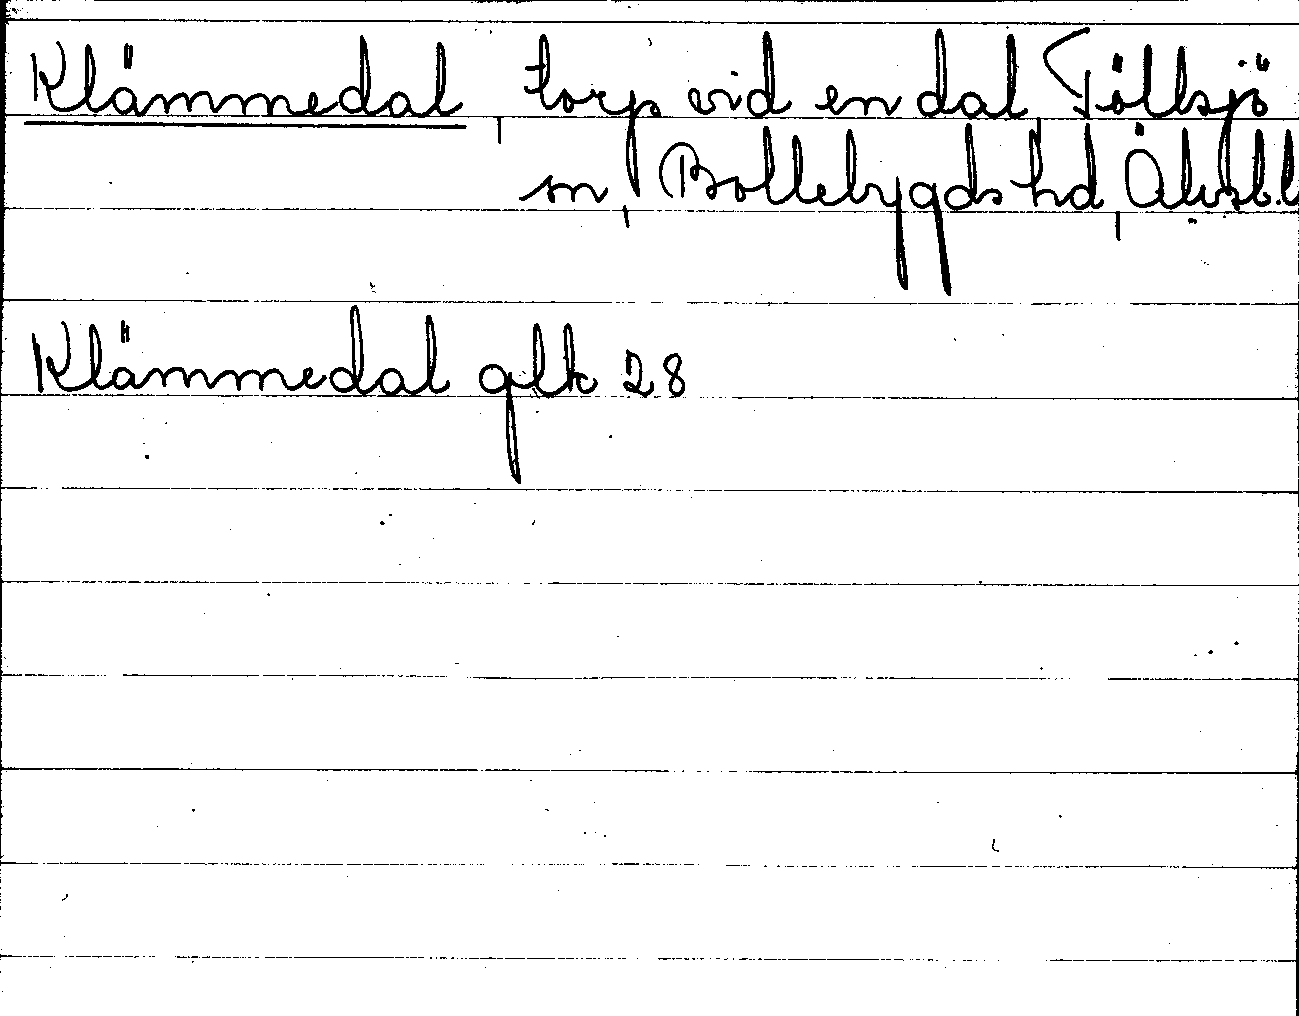 Klämmedal, torp vid en dal, Töllsjö
sn, Bollebygds hd, Älvsb.l
Klämmedal glk 28